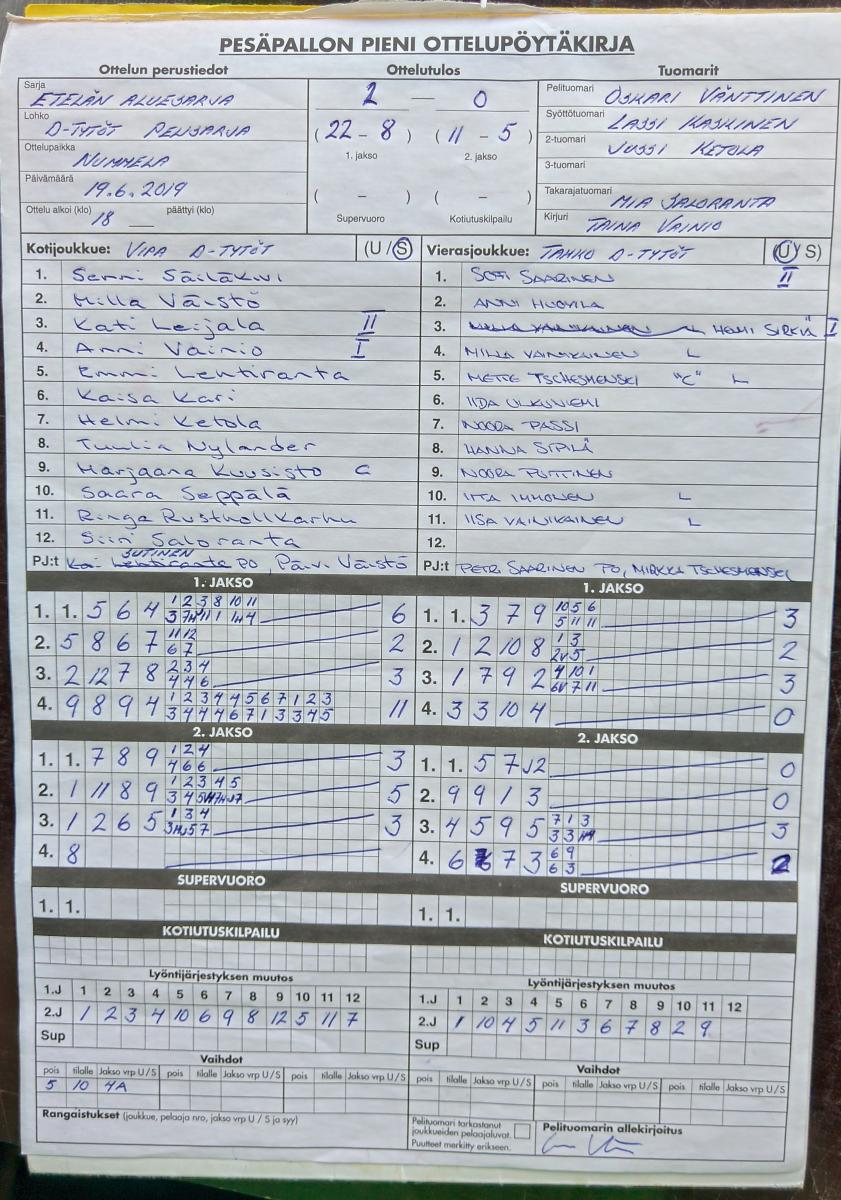 PESÄPALLON PIENI OTTELUPÖYTÄKIRJA
Ottelun perustiedot
Sarja
ETELÄN ALUESARJA
Lohko
D-TYTÖT PERUSARJA
Ottelupaikka
NUMMELA
Päivämäärä
19.6.2019
Ottelu alkoi (klo) 18 päättyi (klo)
Ottelutulos
2 — 0
(22 - 8) (11 - 5)
1. jakso 2. jakso
( - ) ( - )
Supervuoro Kotiutuskilpailu
Tuomarit
Pelituomari OSKARI VÄNTTINEN
Syöttötuomari LASSI KASKINEN
2-tuomari JUSSI KETOLA
3-tuomari
Takarajatuomari MIA SALORANTA
Kirjuri TAINA VAINIO
Kotijoukkue: VIPA D-TYTÖT (U/S)
1. Senni Säiläkivi
2. Milla Väistö
3. Kati Leijala II
4. Anni Vainio I
5. Emmi Lehtiranta
6. Kaisa Kari
7. Helmi Ketola
8. Tuulia Nylander
9. Marjaana Kuusisto C
10. Saara Seppälä
11. Ringa Rusthollkarhu
12. Siiri Saloranta
PJ:t Kai SUTINEN PO, Päivi Väistö
Vierasjoukkue: TAHKO D-TYTÖT (U/S)
1. SOFI SAARINEN II
2. ANNI HUOVILA
3. HEMI SIRKIÄ I
4. MILLA VAINIKAINEN L
5. METTE TSCHESMENSKI "C" L
6. IIDA ULKUNIEMI
7. NOORA PASSI
8. HANNA SIPILÄ
9. NOORA PUTTINEN
10. IITA IMMONEN L
11. IISA VAINIKAINEN L
12.
PJ:t PETRI SAARINEN PO, MIRKKA TSCHESMENSKI
1. JAKSO
1. 1. 5 6 4 1 2 3 8 10 11 6
2. 5 8 6 7 11 12 2
6 7
3. 2 12 7 8 2 3 4 3
4 4 6
4. 9 8 9 4 1 2 3 4 4 5 6 7 1 2 3 11
3 4 4 4 6 7 1 3 3 4 5
1. JAKSO
1. 1. 3 7 9 10 5 6 3
5 11 11
2. 1 2 10 8 1 3 2
2v 5
3. 1 7 9 2 4 10 1 3
6v 7 11
4. 3 3 10 4 0
2. JAKSO
1. 1. 7 8 9 1 2 4 3
4 6 6
2. 1 11 8 9 1 2 3 4 5 5
3. 1 2 6 5 1 3 4 3
4. 8
2. JAKSO
1. 1. 5 7 J2 0
2. 9 9 1 3 0
3. 4 5 9 5 7 1 3 3
4. 6 7 3 6 9 2
6 3
SUPERVUORO
1. 1.
SUPERVUORO
1. 1.
KOTIUTUSKILPAILU
KOTIUTUSKILPAILU
Lyöntijärjestyksen muutos
1.J 1 2 3 4 5 6 7 8 9 10 11 12
2.J 1 2 3 4 10 6 9 8 12 5 11 7
Sup
Lyöntijärjestyksen muutos
1.J 1 2 3 4 5 6 7 8 9 10 11 12
2.J 1 10 4 5 11 3 6 7 8 2 9
Sup
Vaihdot
pois tilalle Jakso vrp U/S pois tilalle Jakso vrp U/S pois tilalle Jakso vrp U/S
5 10 4A
Vaihdot
pois tilalle Jakso vrp U/S pois tilalle Jakso vrp U/S pois tilalle Jakso vrp U/S
Rangaistukset (joukkue, pelaaja nro, jakso vrp U / S ja syy)
Pelituomari tarkastanut
joukkueiden pelaajaluvat.
Puutteet merkitty erikseen.
Pelituomarin allekirjoitus